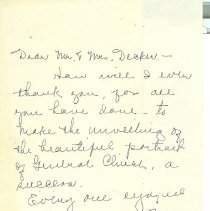 Dear Mr. & Mrs. Decker —
How will I ever
thank you, for all
you have done - to
make the unveiling of
the beautiful portrait
of General Church, a
success.
Every one enjoyed